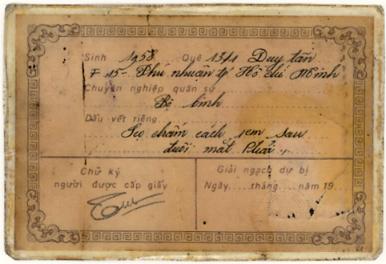 Sinh 1958 Quê 13/1 Duy tân
F 15 - Phú nhuận tp Hồ chí Minh
Chuyên nghiệp quân sự
Bộ binh
Dấu vết riêng
Sẹo chấm cách 1cm sau
đuôi mắt phải
Chữ ký
người được cấp giấy
Giải ngạch dự bị
Ngày.....tháng.....năm 19...